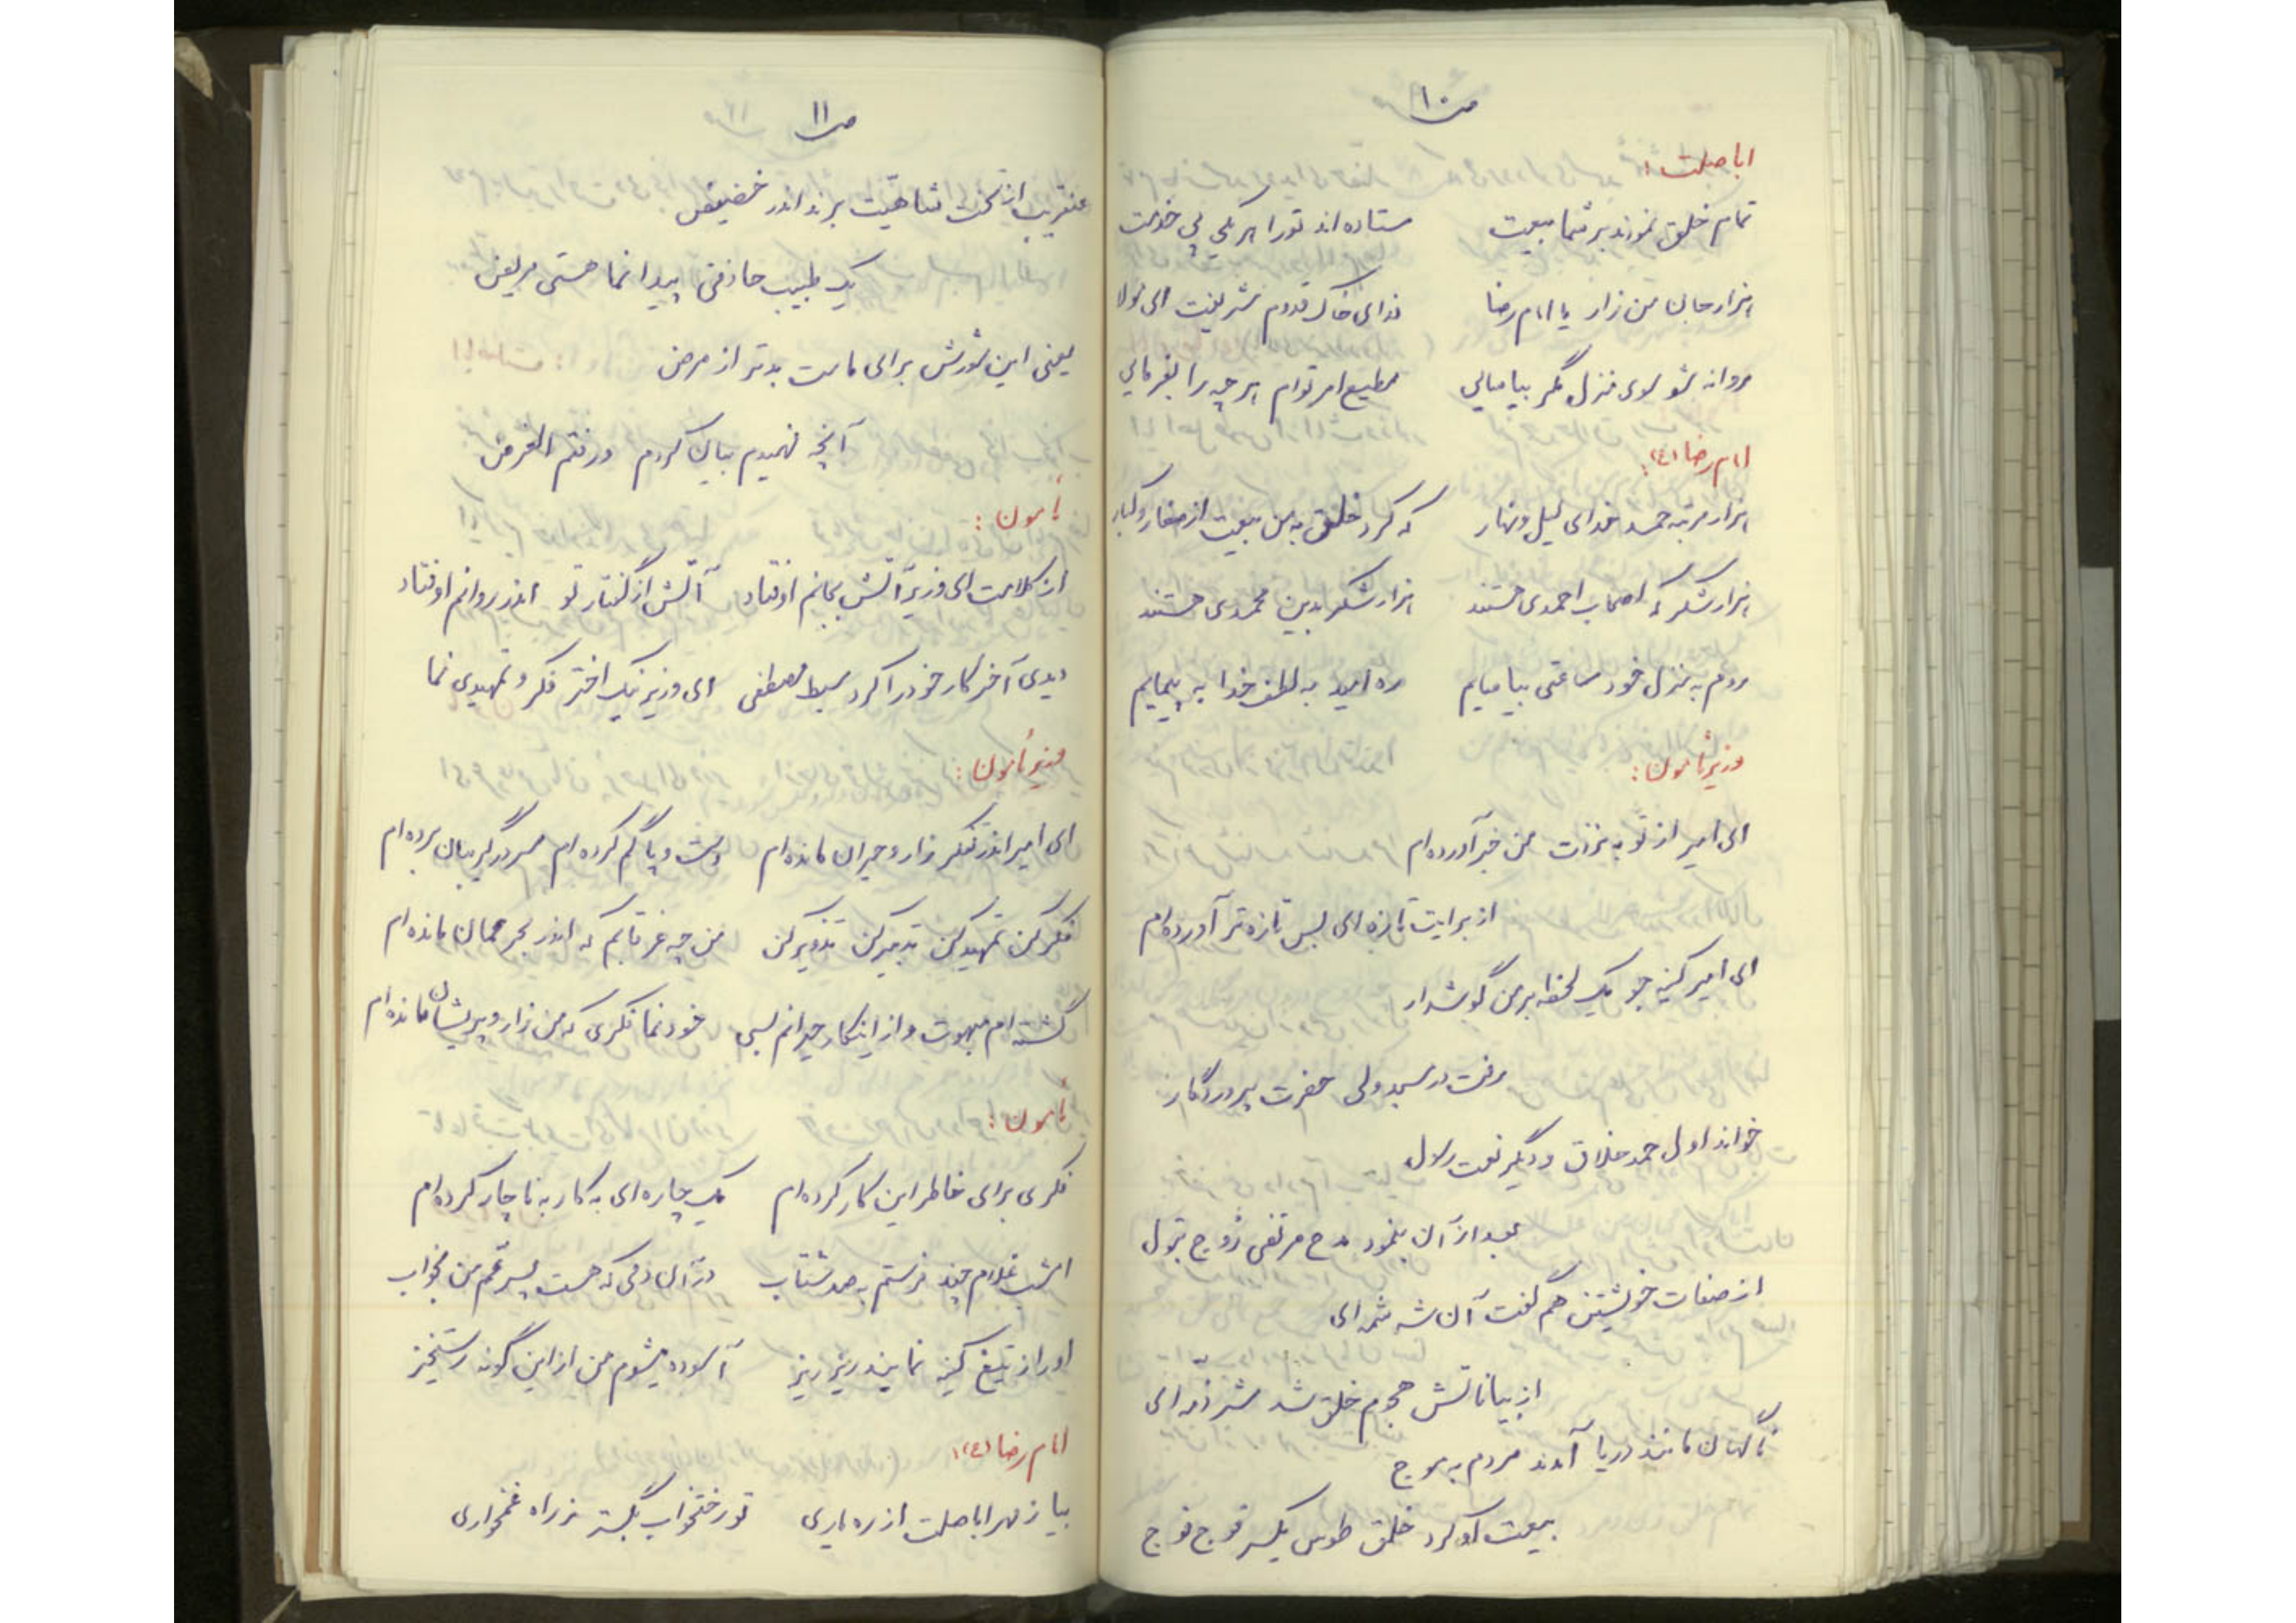 ص ۱۰
اباصلت:
تمام خلق نمودند بر شما بیعت ستاده‌اند تو را هر یکی پی خدمت
هزار جان من زار یا امام رضا فدای خاک قدوم شریفت ای مولا
روانه شو سوی منزل مگر بیاسایی مطیع امر توام هر چه را بفرمایی
امام رضا (ع):
هزار مرتبه حمد خدای لیل و نهار که کرد خلق به من بیعت از صغار و کبار
هزار شکر که اصحاب احمدی هستند هزار شکر بدین محمدی هستند
روم به منزل خود ساعتی بیاسایم ره امید به لطف خدا به پیمایم
وزیر مأمون:
ای امیر از نو به نزدت من خبر آورده‌ام
از برایت تازه‌ای بس تازه‌تر آورده‌ام
ای امیر کینه جو یک لحظه بر من گوشدار
رفت در مسجد ولی حضرت پروردگار
خواند اول حمد خلاق و دیگر نعت رسول
بعد از آن بنمود مدح مرتضی زوج بتول
از صفات خویشتن هم گفت آن شه شمه‌ای
از بیاناتش هجوم خلق شد شرذمه‌ای
ناگهان مانند دریا آمدند مردم به موج
بیعت او کرد خلق طوس یکسر فوج فوج
ص ۱۱
عنقریب از تخت شاهیت برند اندر حضیض
یک طبیب حاذقی پیدا نما هستی مریض
یعنی این شورش برای ماست بدتر از مرض
آنچه فهمیدم بیان کردم و رفتم الغرض
مأمون:
از کلامت ای وزیر آتش بجانم اوفتاد آتش از گفتار تو اندر روانم اوفتاد
دیدی آخر کار خود را کرد سبط مصطفی ای وزیر نیک اختر فکر و تمهیدی نما
وزیر مأمون:
ای امیر اندر تفکر زار و حیران مانده‌ام دست و پا گم کرده‌ام سر در گریبان برده‌ام
فکر کن تمهید کن تدبیر کن تزویر کن من چه غرقابم که اندر بحر عمان مانده‌ام
گشته‌ام مبهوت و از اینکار حیرانم بسی خود نما فکری که من زار و پریشان مانده‌ام
مأمون:
فکری برای خاطر این کار کرده‌ام یک چاره‌ای به کار به ناچار کرده‌ام
امشب غلام چند فرستم به صد شتاب در آن دمی که هست پسر عم من بخواب
او را ز تیغ کینه نمایند ریز ریز آسوده میشوم من از این گونه رستخیز
امام رضا (ع):
بیا ز مهر اباصلت از ره یاری تو رختخواب بگستر ز راه غمخواری